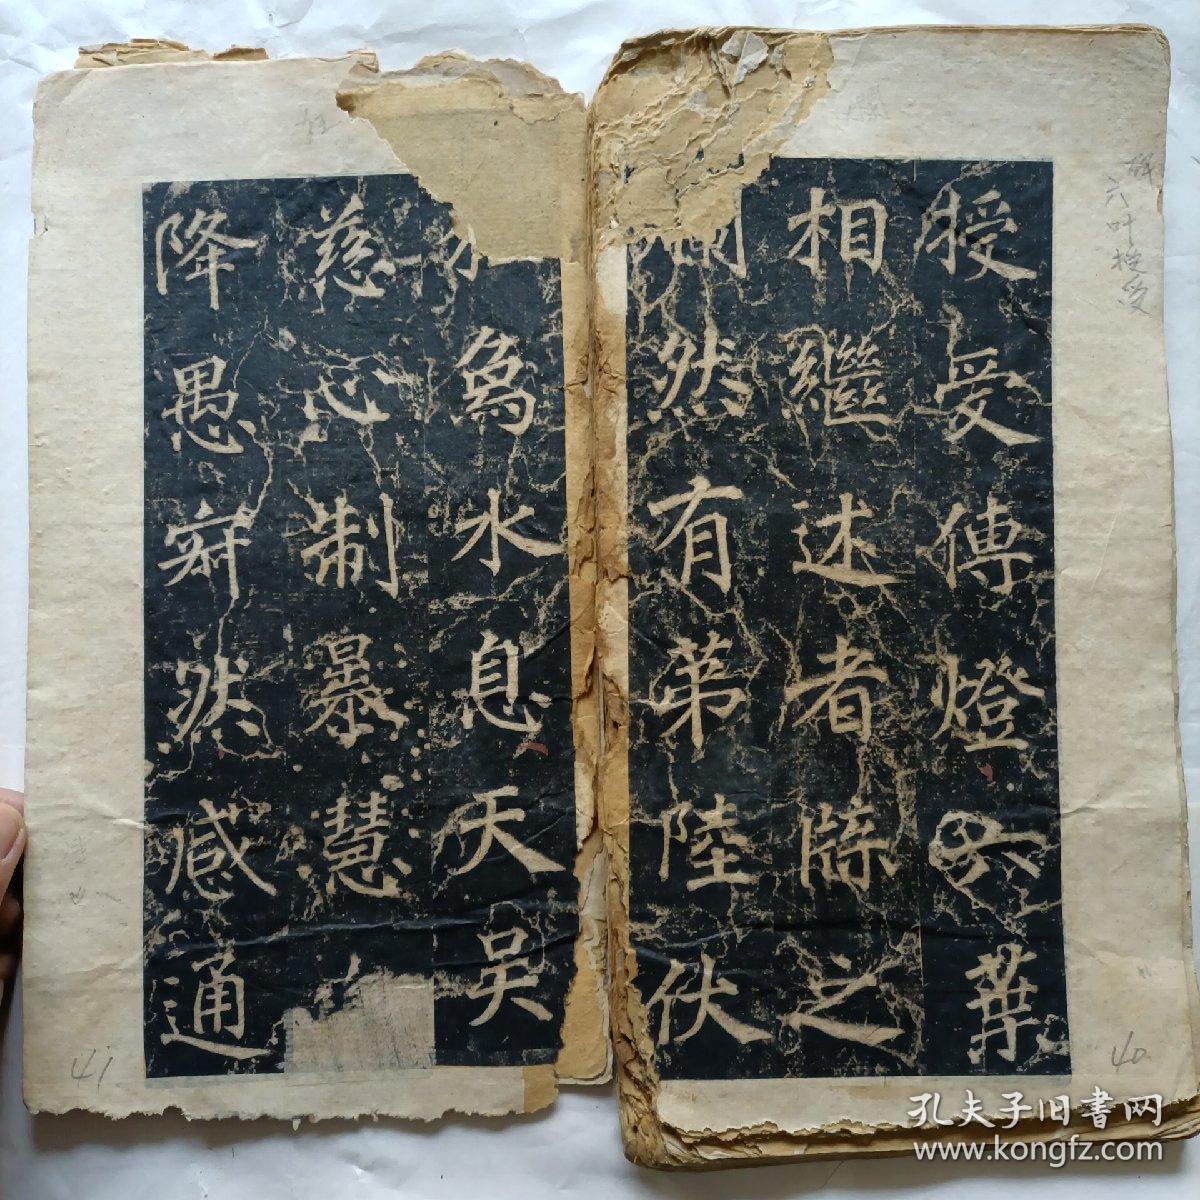 六叶授受
授受傳燈六葉
相繼述者牒之
然有第陸伏
為水息天吳
慈心制暴慧
降愚寂然感通
40
41
孔夫子旧書网
www.kongfz.com